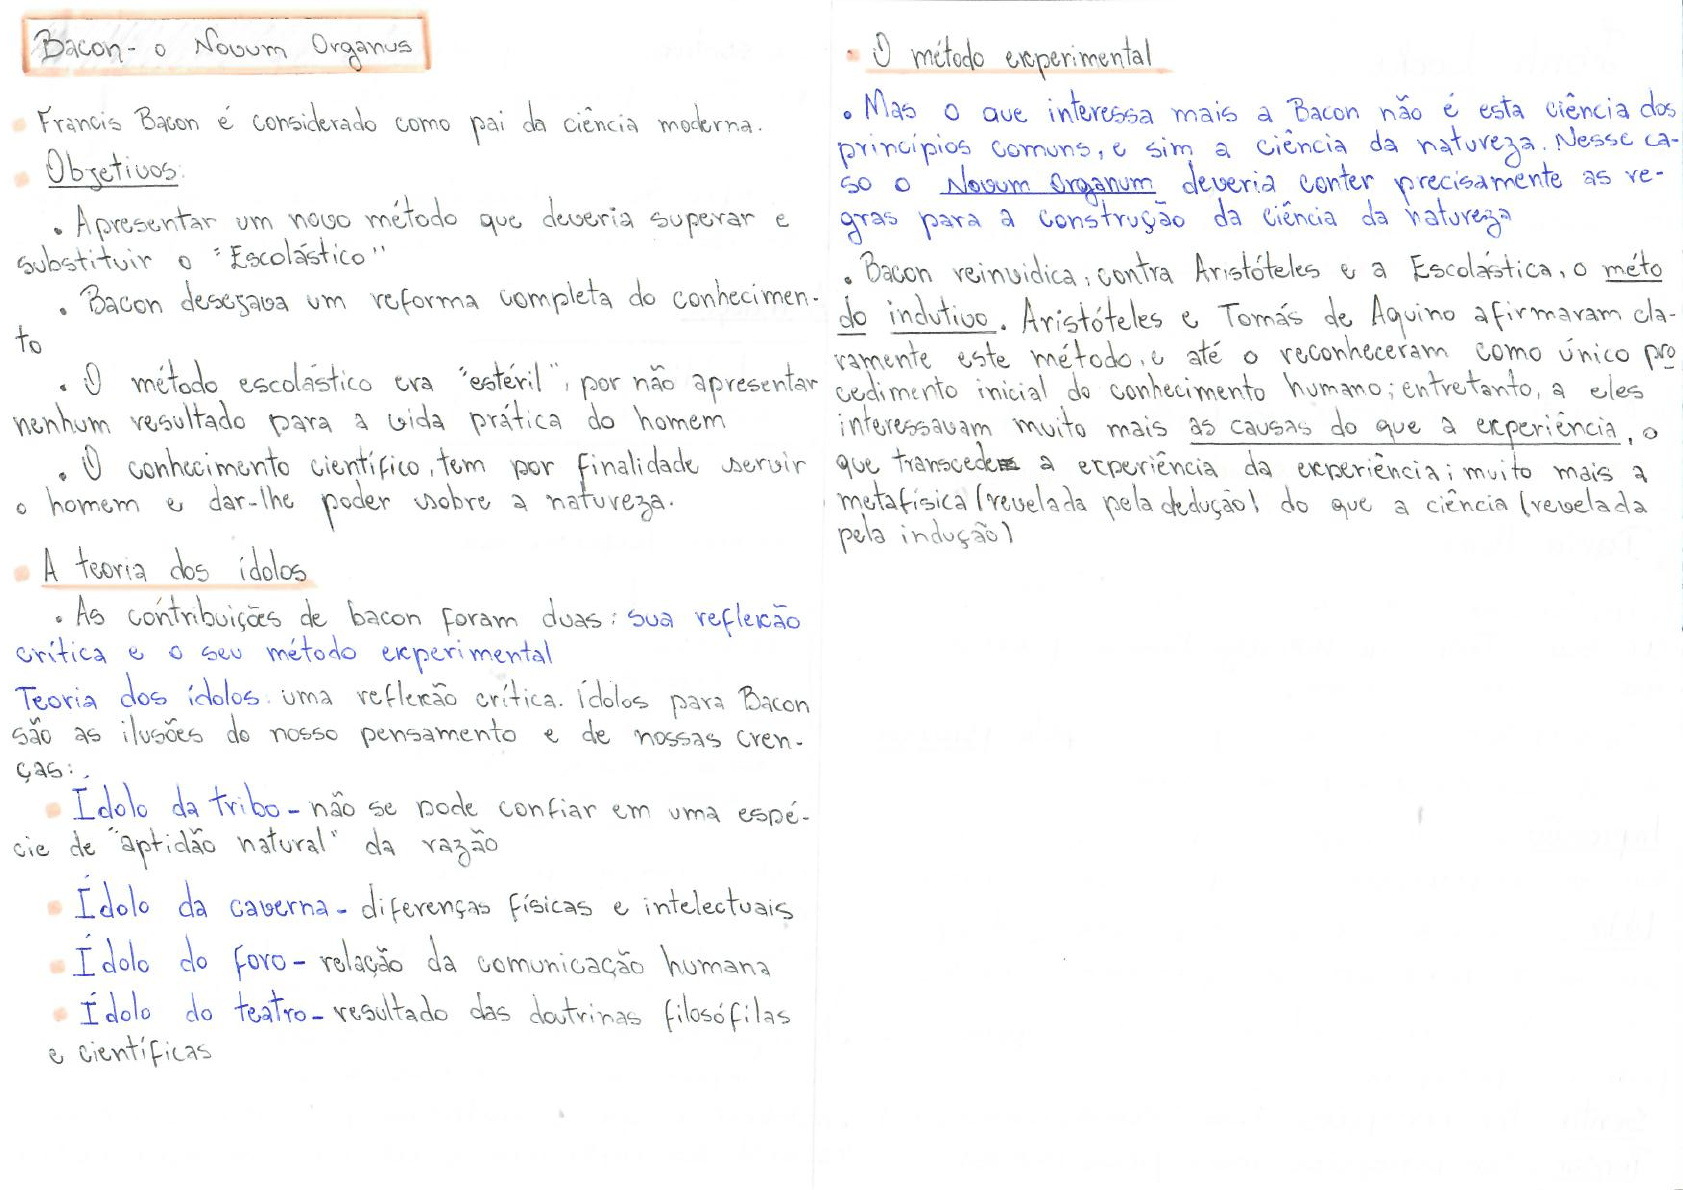 Bacon - o Novum Organus
• Francis Bacon é considerado como pai da ciência moderna.
• Objetivos:
• Apresentar um novo método que deveria superar e
substituir o "Escolástico"
• Bacon desejava um reforma completa do conhecimen-
to
• O método escolástico era "estéril", por não apresentar
nenhum resultado para a vida prática do homem
• O conhecimento científico, tem por finalidade servir
o homem e dar-lhe poder sobre a natureza.
• A teoria dos ídolos
• As contribuições de bacon foram duas: sua reflexão
crítica e o seu método experimental
Teoria dos ídolos: uma reflexão crítica. ídolos para Bacon
são as ilusões do nosso pensamento e de nossas cren-
ças:
• Ídolo da tribo - não se pode confiar em uma espé-
cie de "aptidão natural" da razão
• Ídolo da caverna - diferenças físicas e intelectuais
• Ídolo do foro - relação da comunicação humana
• Ídolo do teatro - resultado das doutrinas filosófilas
e científicas
• O método experimental
• Mas o que interessa mais a Bacon não é esta ciência dos
princípios comuns, e sim a ciência da natureza. Nesse ca-
so o Novum Organum deveria conter precisamente as re-
gras para a construção da ciência da natureza
• Bacon reinvidica, contra Aristóteles e a Escolástica, o méto
do indutivo. Aristóteles e Tomás de Aquino afirmaram cla-
ramente este método, e até o reconheceram como único pro
cedimento inicial do conhecimento humano; entretanto, a eles
interessavam muito mais as causas do que a experiência, o
que transcede a experiência da experiência; muito mais a
metafísica (revelada pela dedução) do que a ciência (revelada
pela indução)